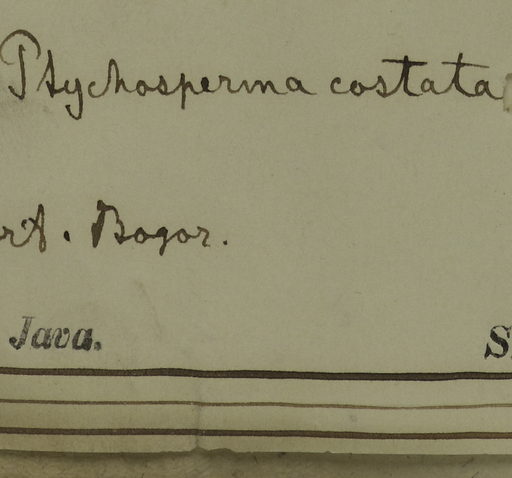 Ptychosperma costata
Bogor.
Java.